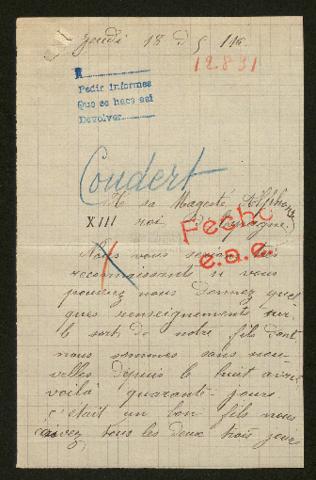 Jeudi 18 5 116
12.831
R
Pedir informes
Que se hace asi
Devolver
Coudert
A sa Magesté Alphonse
XIII roi d'Espagne.
Fecho
e.a.e.
Nous vous serions très
reconnaissants si vous
pouviez nous donnez quel
ques renseignements sur
le sort de notre fils dont
nous sommes sans nou
velles depuis le huit avril
voilà quarante jours
c'était un bon fils nous
tous les deux trois jours